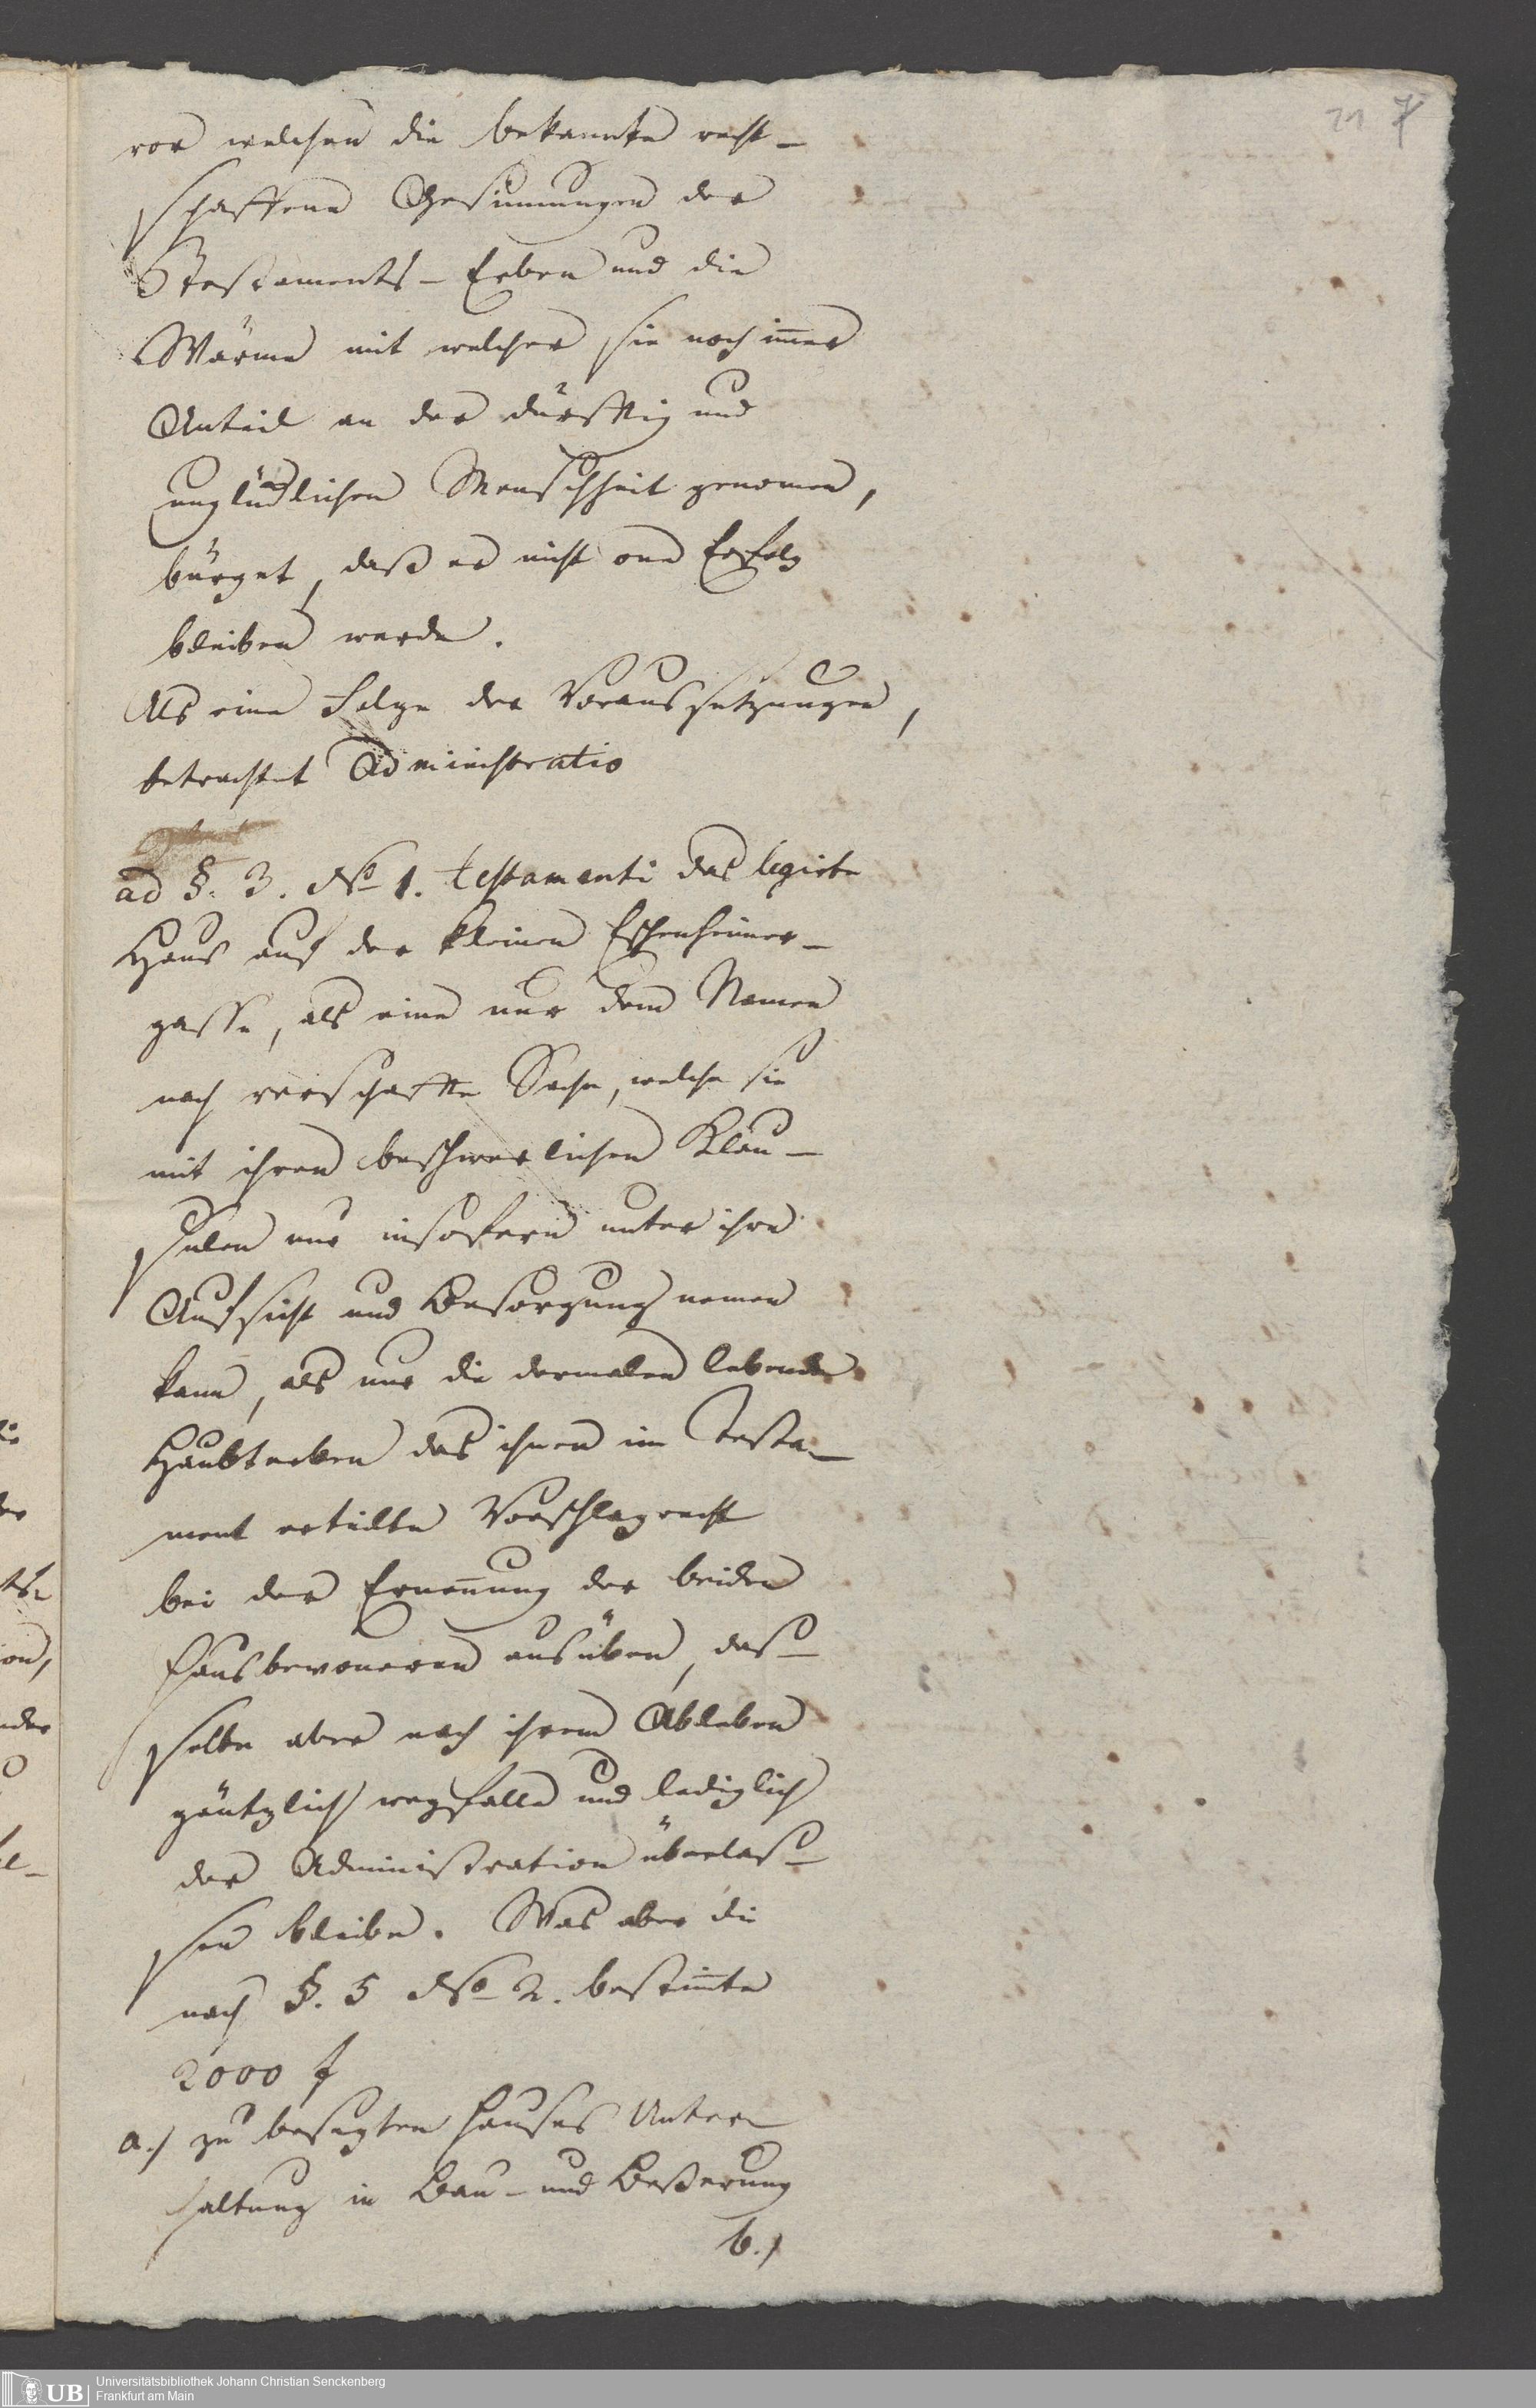 21 7
vor welchen die bekannte recht-
schaffene Gesinnungen der
Testaments-Erben und die
Wärme mit welcher sie noch im̄er
Anteil an der dürfftig und
unglücklichen Menschheit genomen,
bürget, daß er nicht one Erfolg
bleiben werde.
Als eine Folge der Voraussetzungen,
betrachtet Administratio
ad §. 3. No 1. testamenti das legirte
Haus auf der kleinen Eschenheimer-
gasse, als eine nur dem Namen
nach verschaffte Sache, welche sie
mit ihren beschwerlichen Klau-
sulen nur insofern unter ihre
Aufsicht und Besorgung nemen
kann, als nur die dermalen lebende
Haubterben das ihnen im Testa-
ment erteilte Vorschlagrecht
bei der Ernen̄ung der beiden
Hausbewoneren ausüben, das-
selbe aber nach ihrem Ableben
gäntzlich wegfalle und lediglich
der Administration überlaß-
sen bleibe. Was aber die
nach §. 5 No 2. bestim̄te
2000 f
a.) zu besagten Hauses Unter-
haltung in Bau- und Beßerung
b.)
UB Universitätsbibliothek Johann Christian Senckenberg
Frankfurt am Main